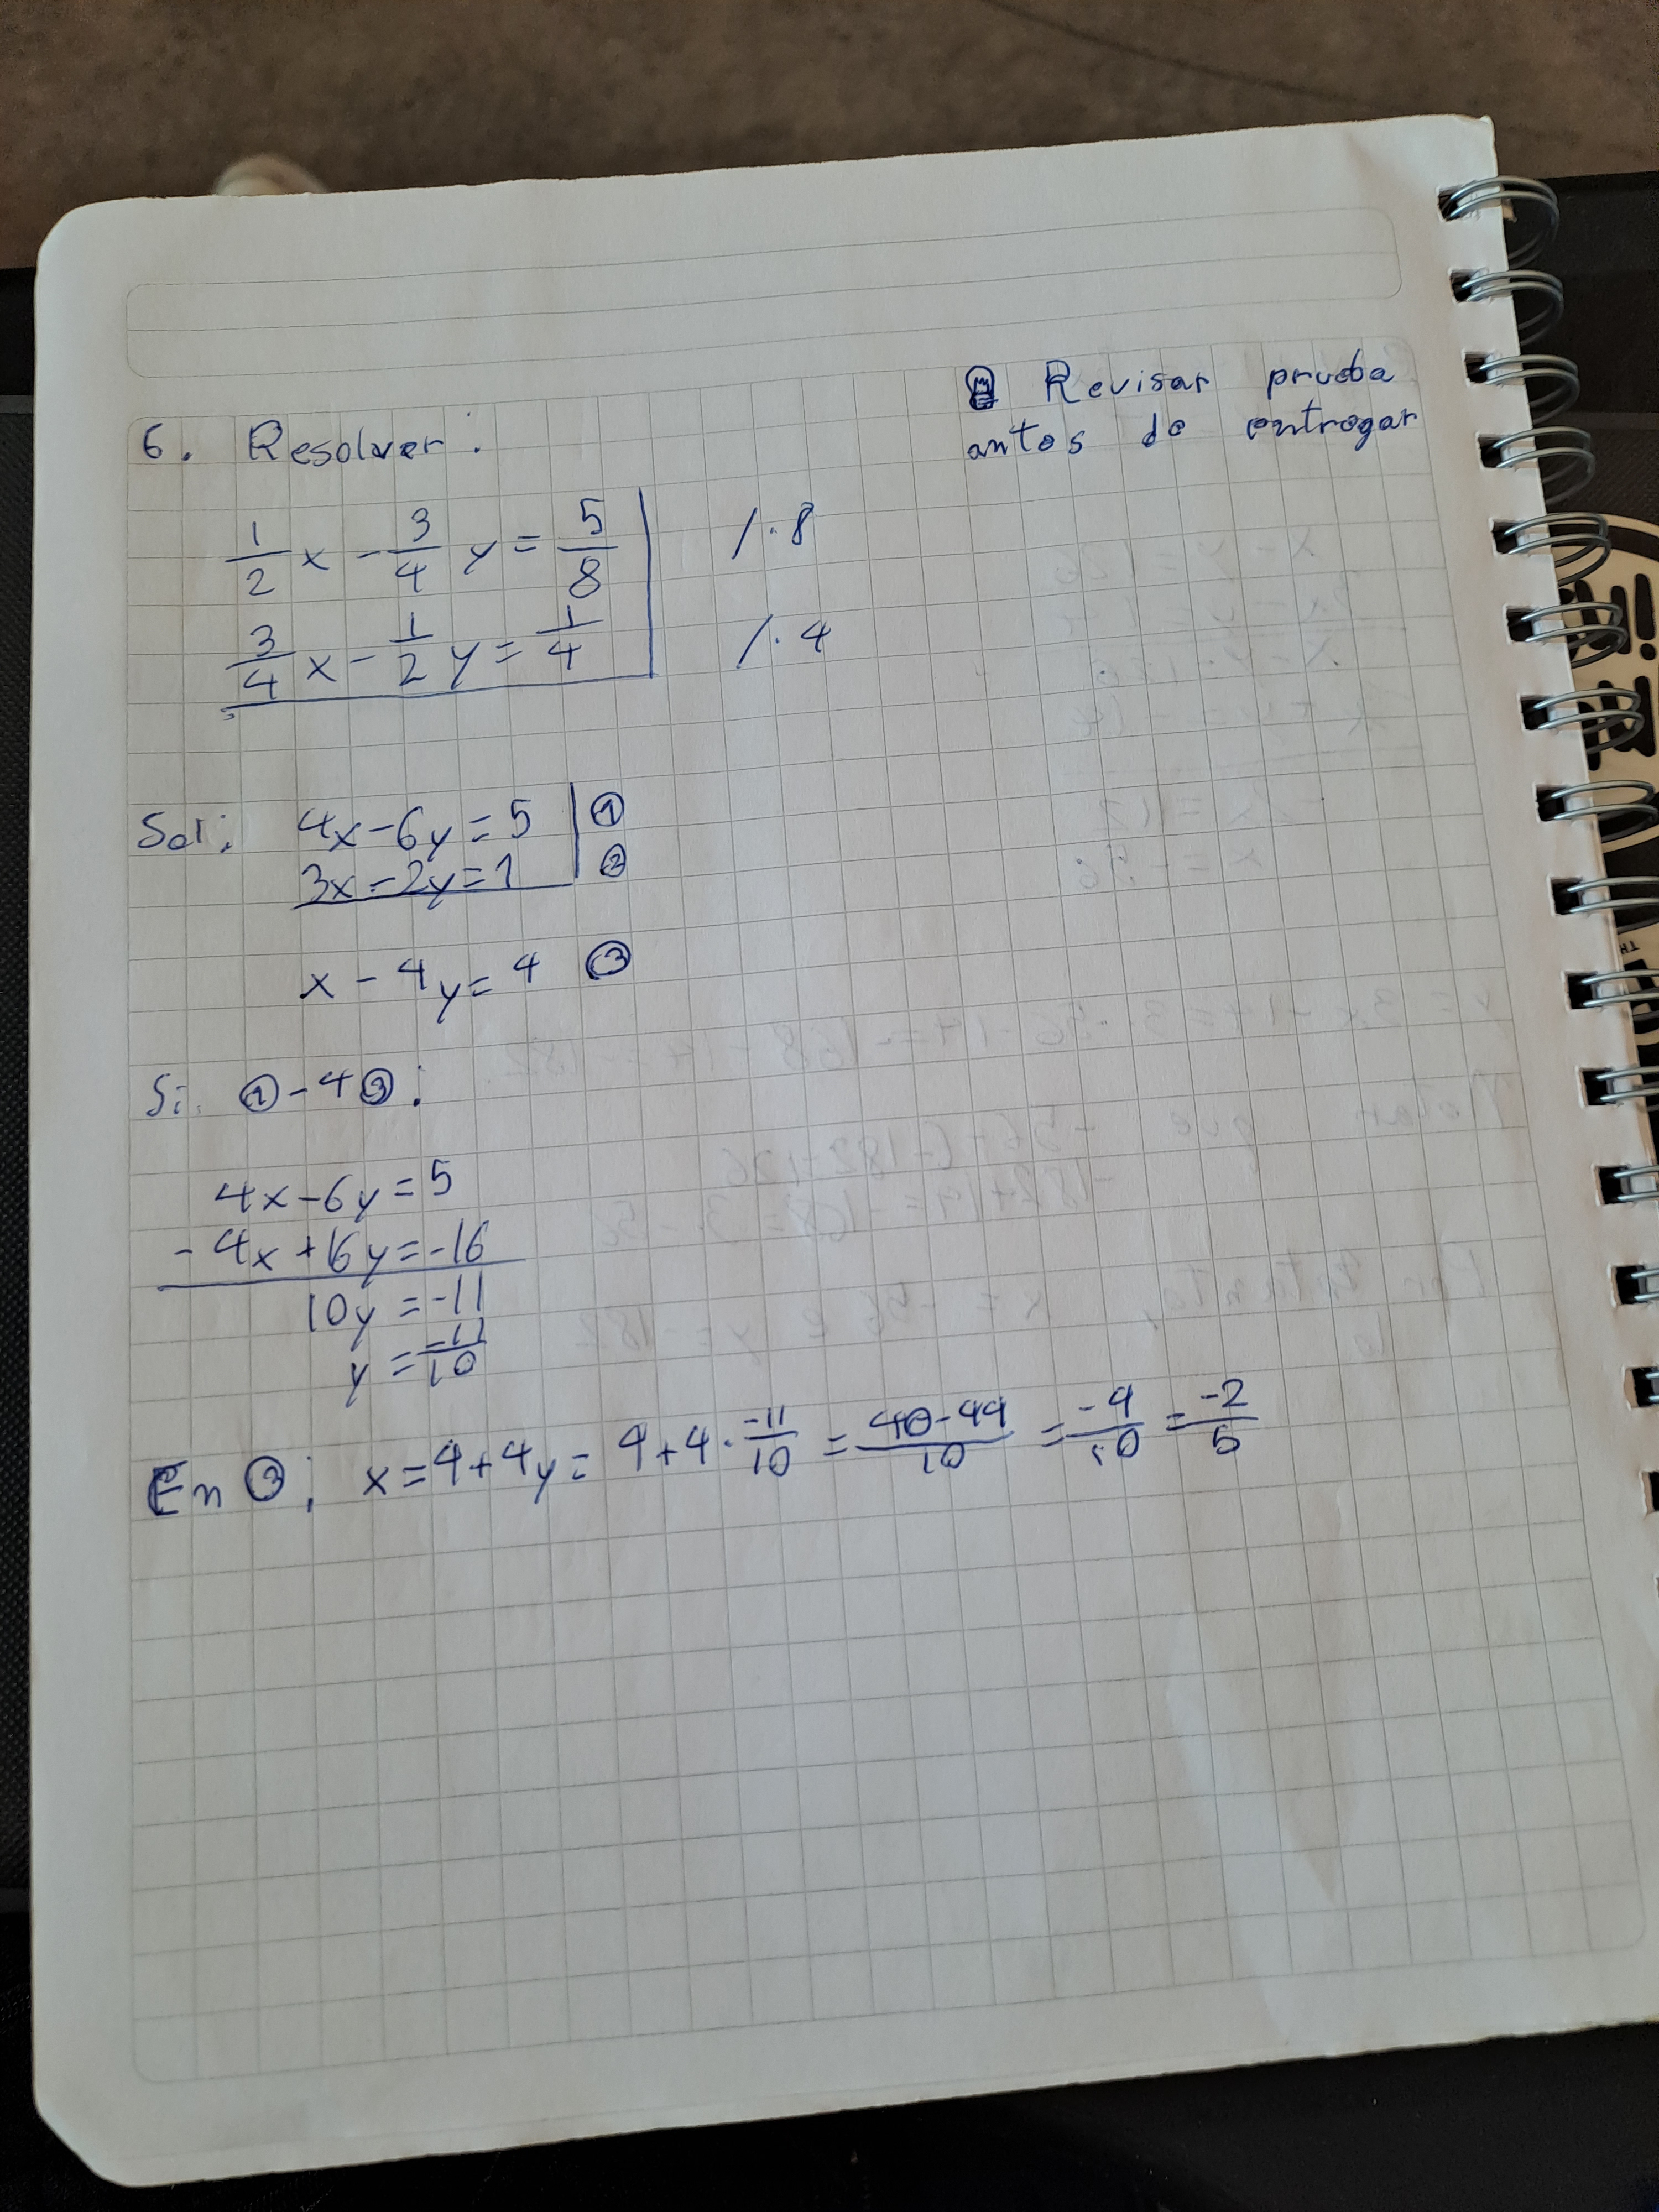 Revisar prueba
antes de entregar
6. Resolver:
1/2 x - 3/4 y = 5/8 | /·8
3/4 x - 1/2 y = 1/4 | /·4
Sol: 4x-6y=5 | ①
3x-2y=1 | ②
x-4y=4 ③
Si ①-4③:
4x-6y=5
-4x+16y=-16
10y=-11
y=-11/10
En ③; x=4+4y=4+4·-11/10=40-44/10=-4/10=-2/5